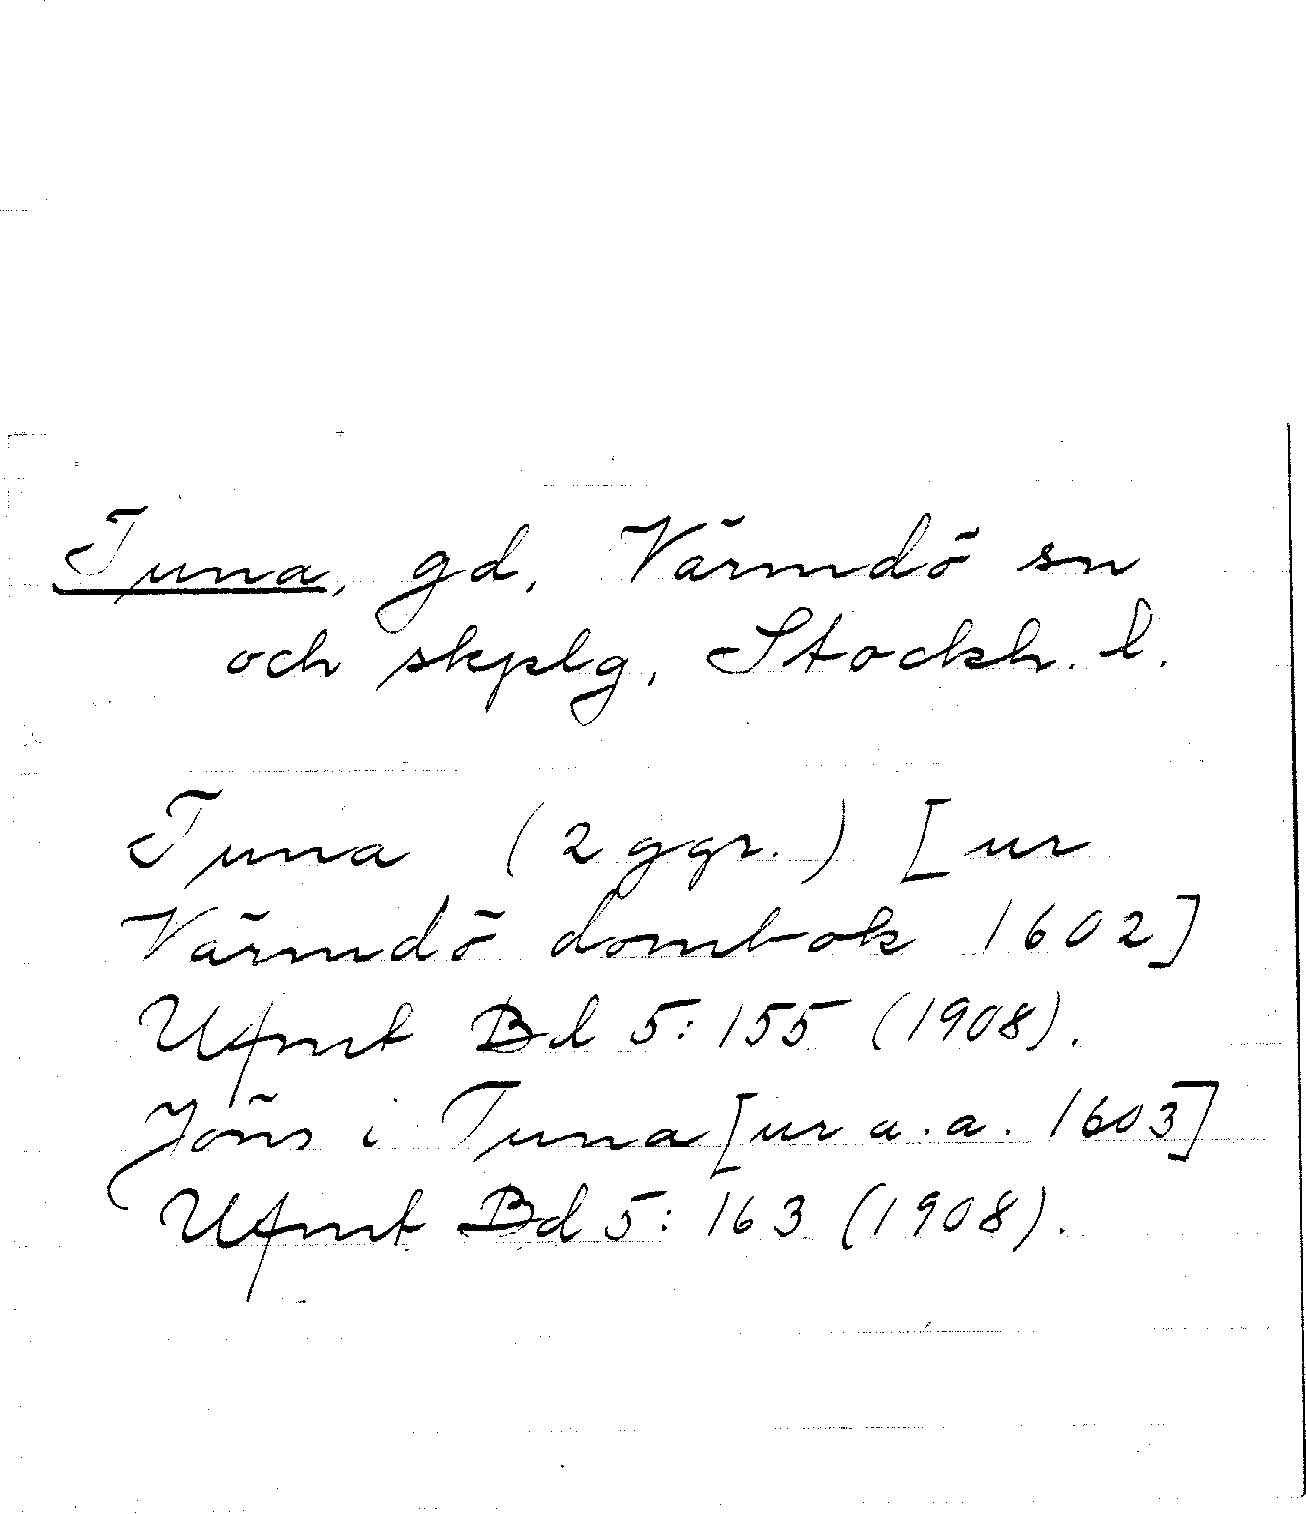 Tuna, gd, Värmdö sn
och skplg, Stockh. l.
Tuna (2 ggr.) [ur
Värmdö dombok 1602]
Ufmt Bd 5:155 (1908).
Jöns i Tuna [ur a.a. 1603]
Ufmt Bd 5:163 (1908).